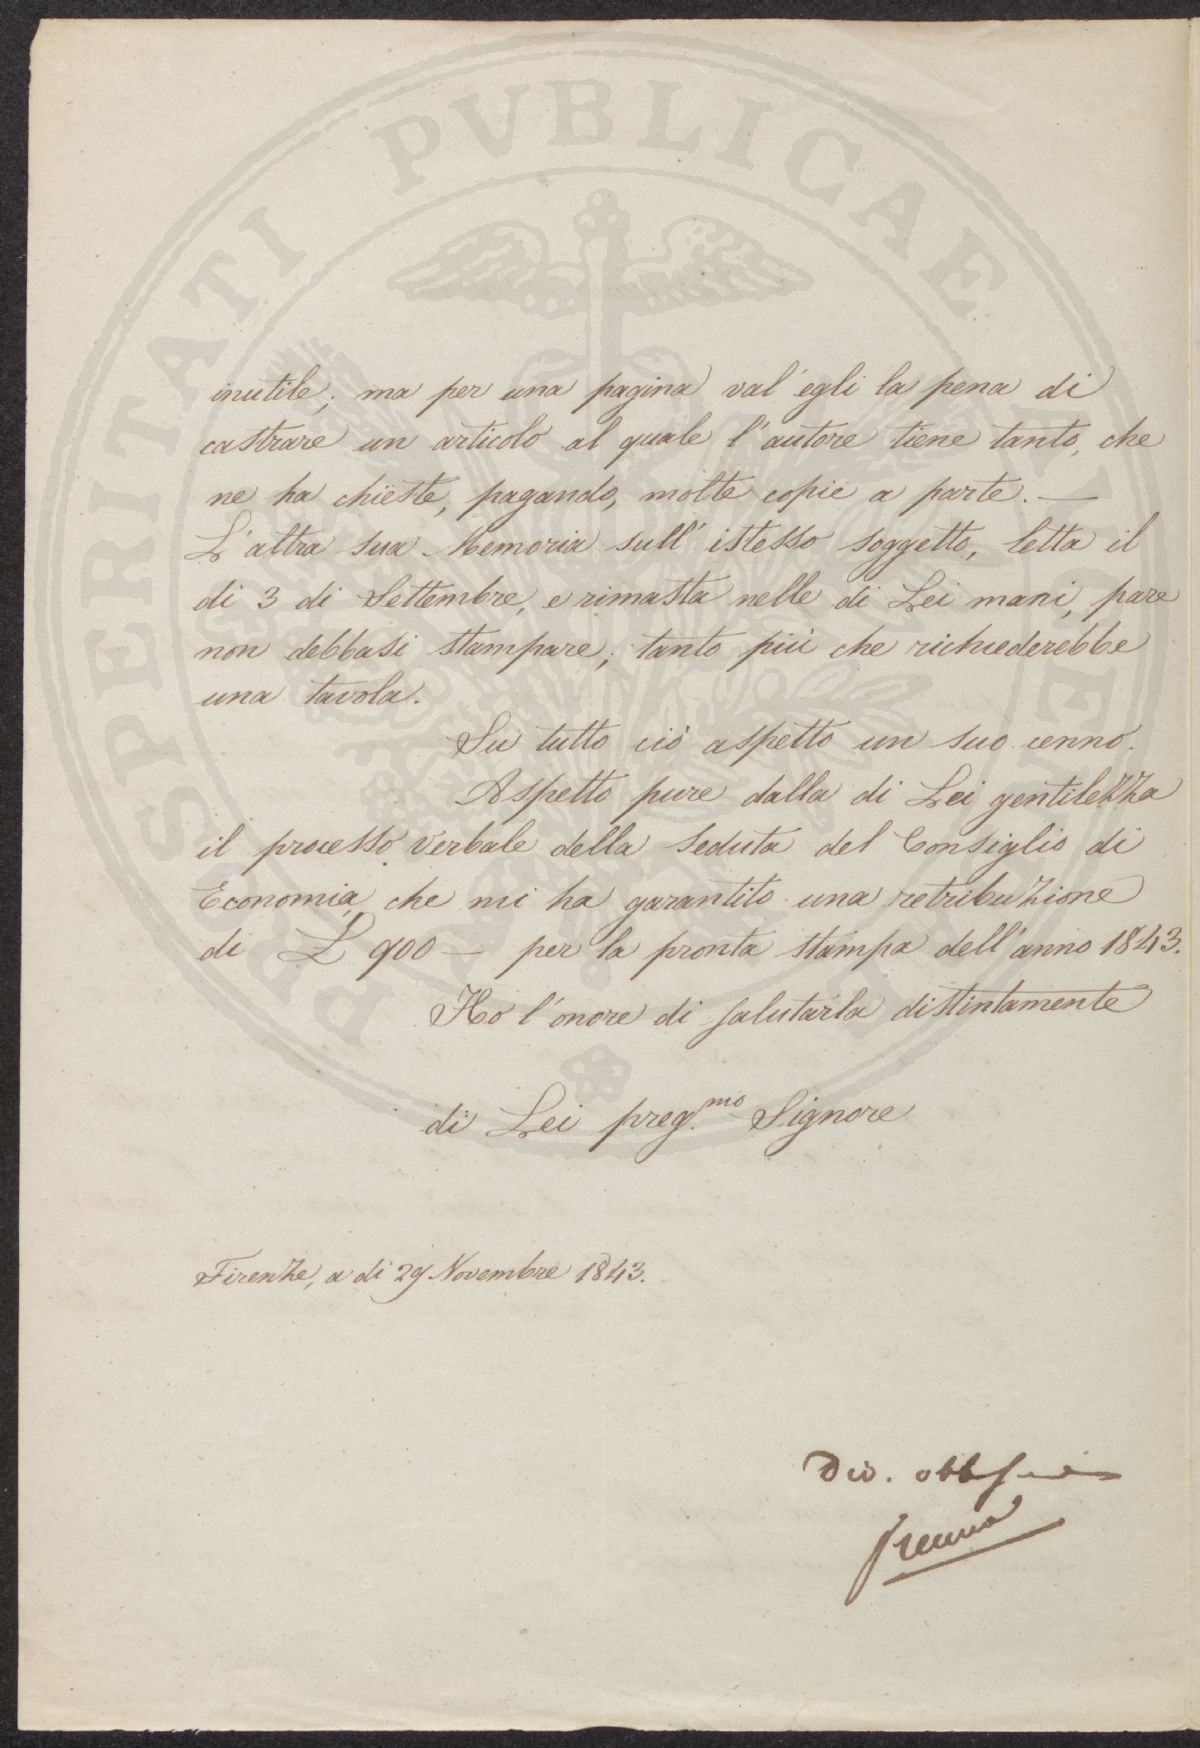 PROSPERITATI PUBLICAE
inutile; ma per una pagina val' egli la pena di
castrare un articolo al quale l'autore tiene tanto, che
ne ha chieste, pagando, molte copie a parte. —
L'altra sua Memoria sull' istesso soggetto, letta il
di 3 di Settembre, e rimasta nelle di Lei mani, pare
non debbasi stampare; tanto più che richiederebbe
una tavola.
Su tutto ciò aspetto un suo cenno.
Aspetto pure dalla di Lei gentilezza
il processo verbale della Seduta del Consiglio di
Economia, che mi ha garantito una retribuzione
di £ 900 — per la pronta stampa dell'anno 1843.
Ho l'onore di salutarla distintamente
di Lei preg.mo Signore
Firenze, a di 29 Novembre 1843.